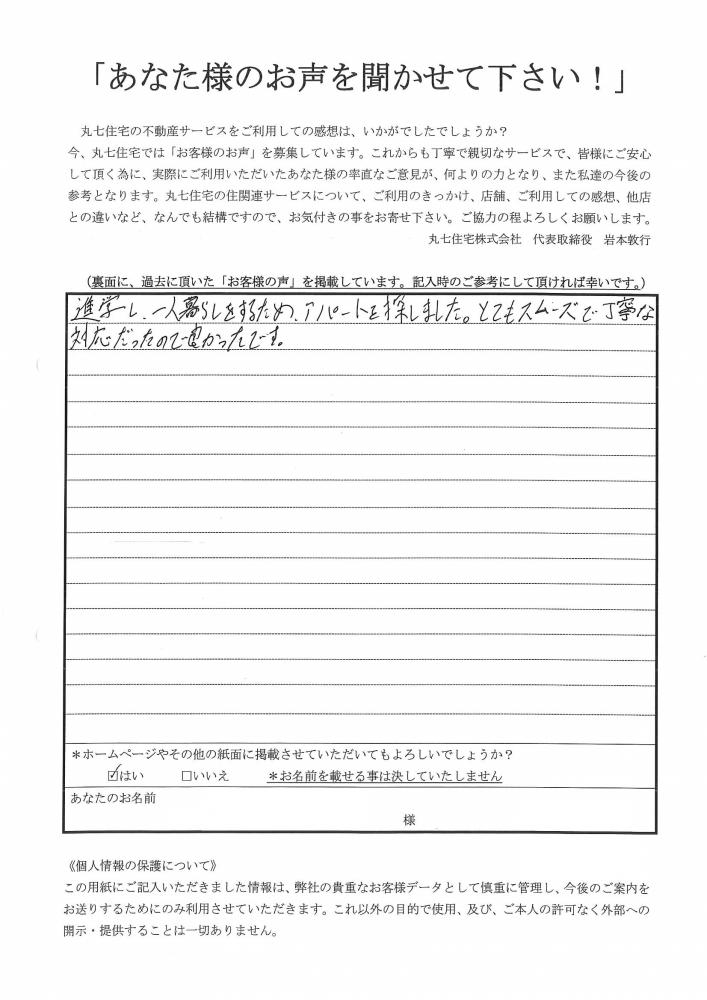 「あなた様のお声を聞かせて下さい！」
丸七住宅の不動産サービスをご利用しての感想は、いかがでしたでしょうか？
今、丸七住宅では「お客様のお声」を募集しています。これからも丁寧で親切なサービスで、皆様にご安心
して頂く為に、実際にご利用いただいたあなた様の率直なご意見が、何よりの力となり、また私達の今後の
参考となります。丸七住宅の住関連サービスについて、ご利用のきっかけ、店舗、ご利用しての感想、他店
との違いなど、なんでも結構ですので、お気付きの事をお寄せ下さい。ご協力の程よろしくお願いします。
丸七住宅株式会社　代表取締役　岩本敦行
（裏面に、過去に頂いた「お客様の声」を掲載しています。記入時のご参考にして頂ければ幸いです。）
進学し、一人暮らしをするため、アパートを探しました。とてもスムーズで丁寧な
対応だったので良かったです。
＊ホームページやその他の紙面に掲載させていただいてもよろしいでしょうか？
☑はい　□いいえ　＊お名前を載せる事は決していたしません
あなたのお名前
様
《個人情報の保護について》
この用紙にご記入いただきました情報は、弊社の貴重なお客様データとして慎重に管理し、今後のご案内を
お送りするためにのみ利用させていただきます。これ以外の目的で使用、及び、ご本人の許可なく外部への
開示・提供することは一切ありません。